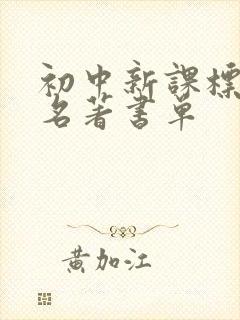 初中新課標
名著書單
黄加江